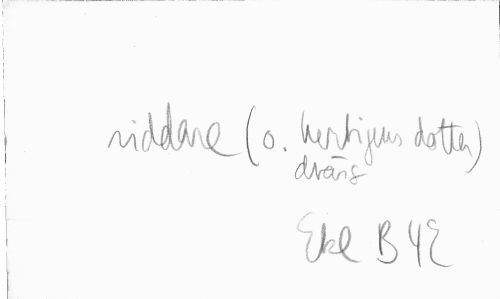 riddare (o. hertigens dotter)
dräng
Ekl B 4E